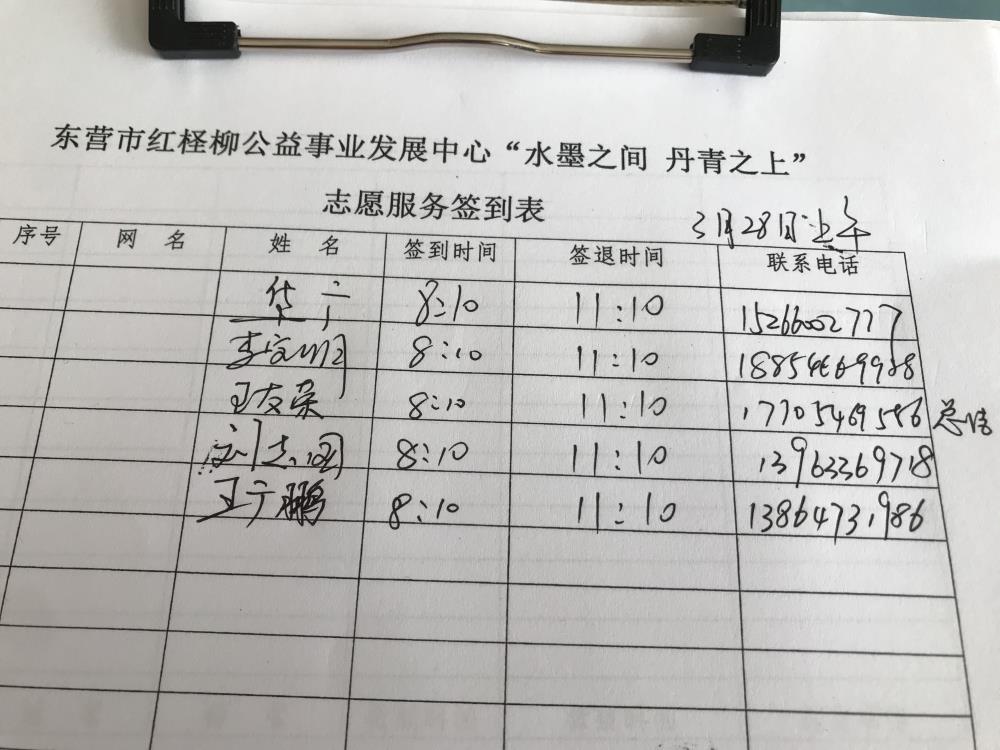 东营市红柽柳公益事业发展中心“水墨之间 丹青之上”
志愿服务签到表
3月28日上午
序号 网 名 姓 名 签到时间 签退时间 联系电话
8:10 11:10 15266002777
8:10 11:10
王友荣 8:10 11:10 17705469586 总结
刘志 8:10 11:10 13963369718
王宁鹏 8:10 11:10 13864731986